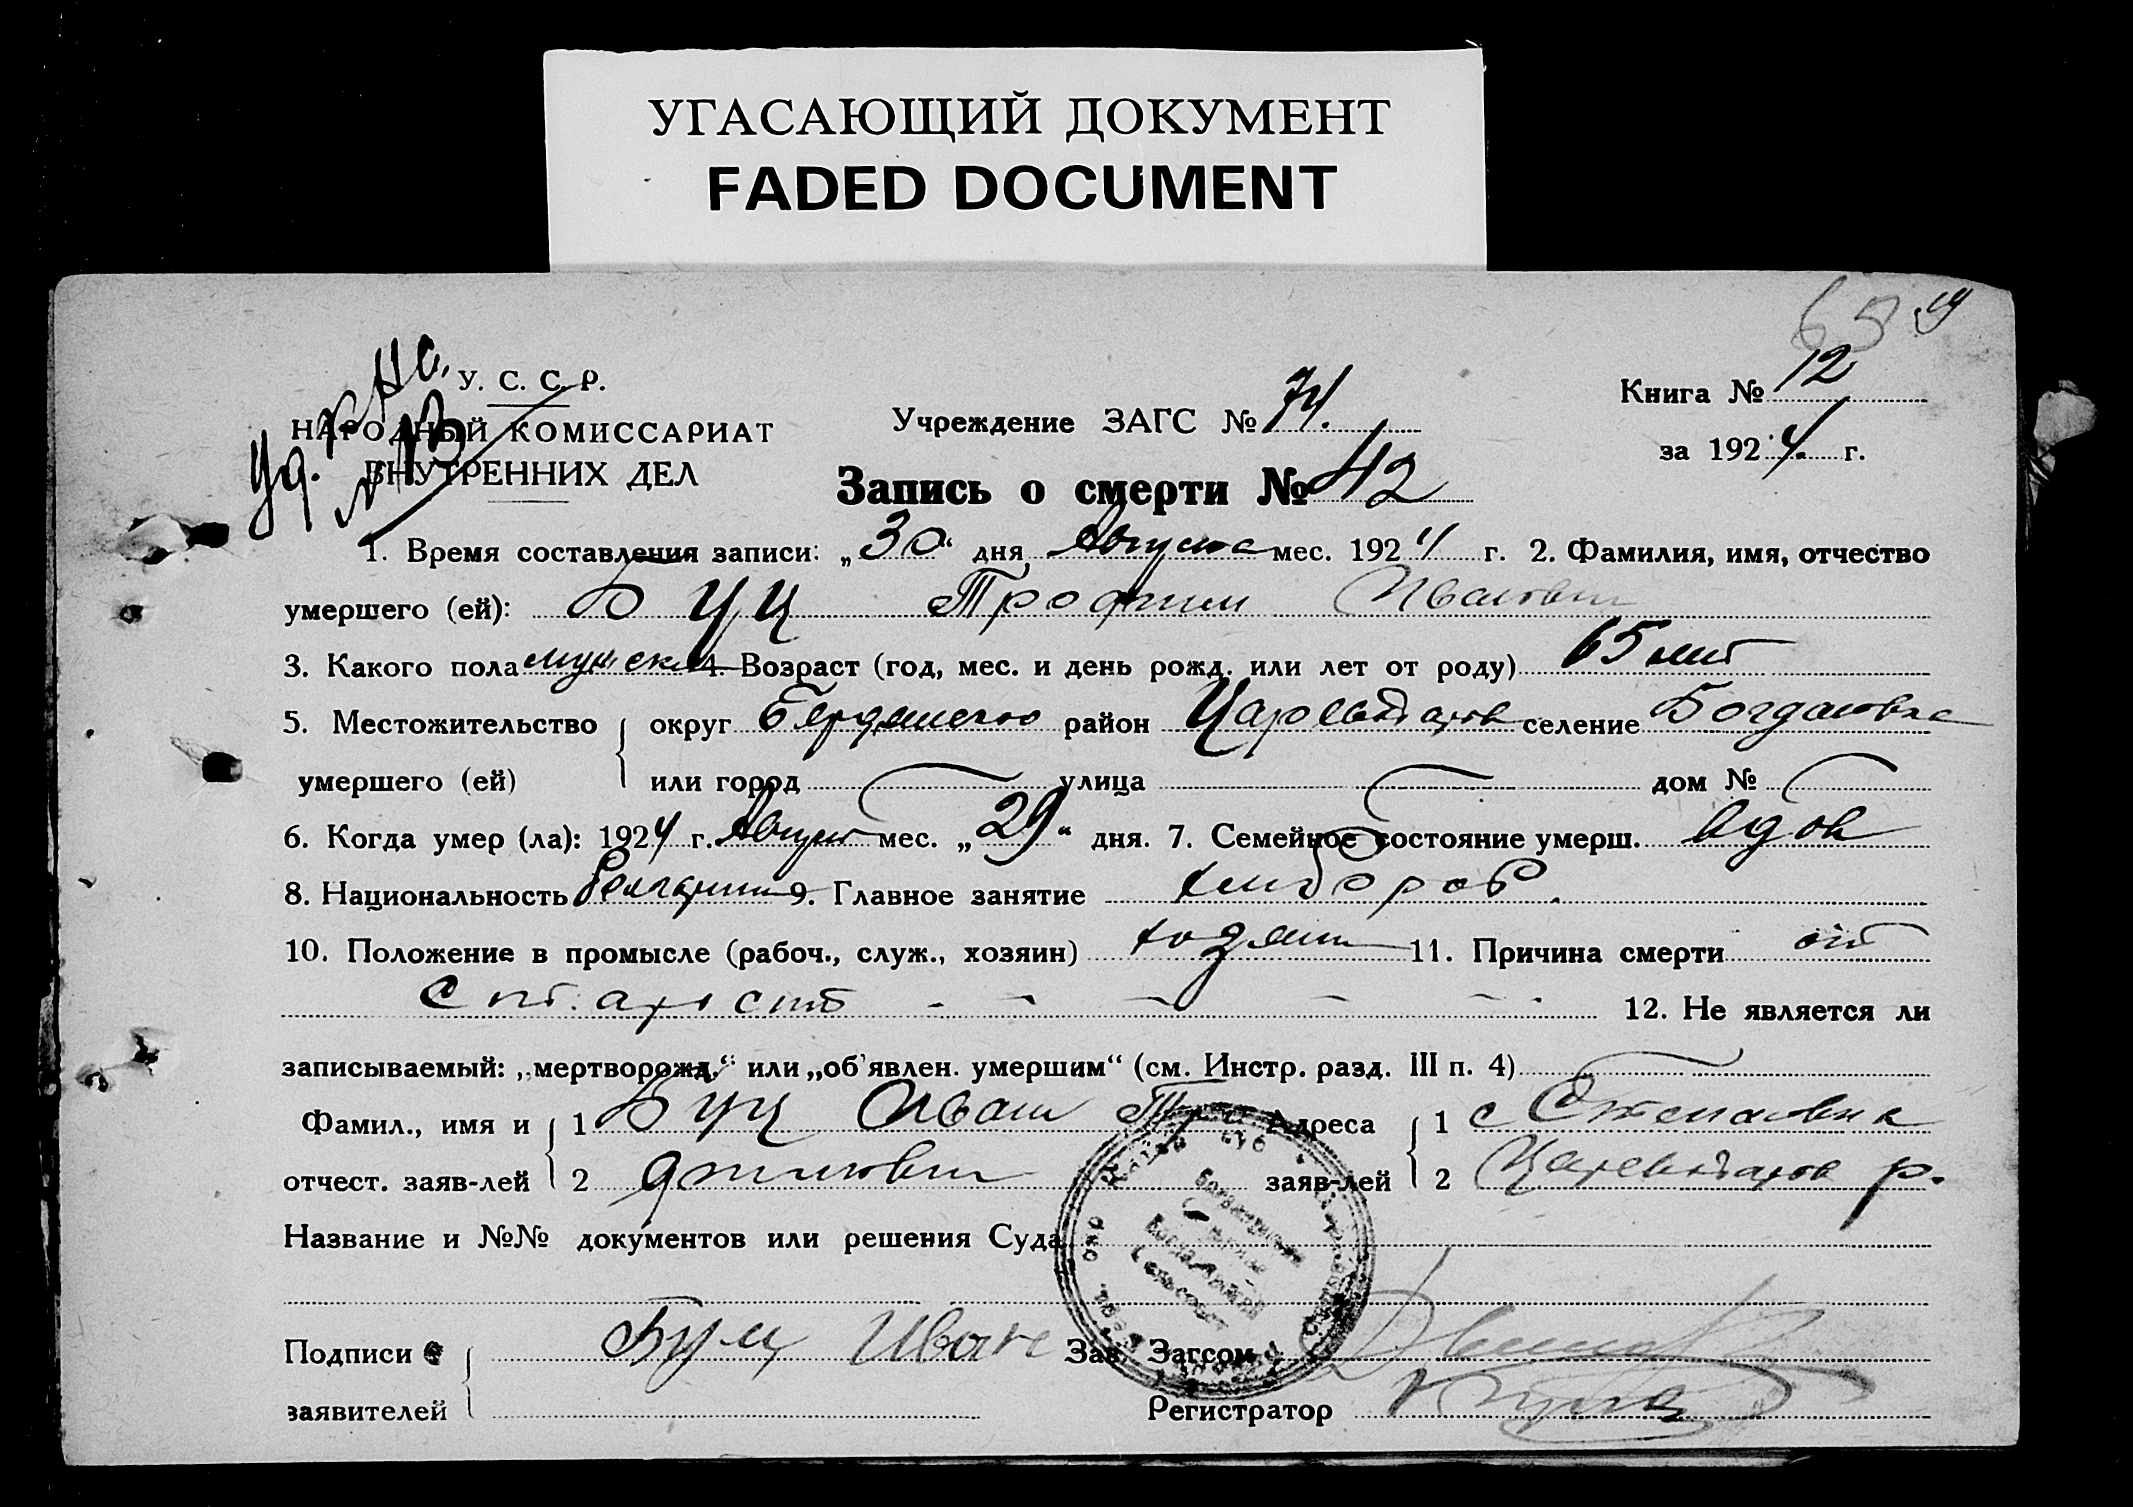 УГАСАЮЩИЙ ДОКУМЕНТ
FADED DOCUMENT
У. С. С. Р.
НАРОДНЫЙ КОМИССАРИАТ
ВНУТРЕННИХ ДЕЛ
Учреждение ЗАГС № 74.
Книга № 12
за 1924. г.
Запись о смерти № 42
1. Время составления записи: „30“ дня Августа мес. 1924 г. 2. Фамилия, имя, отчество
умершего (ей): Буц Трофим Иванович
3. Какого пола мужеск 4. Возраст (год, мес. и день рожд. или лет от роду) 65 лет
5. Местожительство округ район селение Богдановка
умершего (ей) или город улица дом №
6. Когда умер (ла): 1924 г. Август мес. „29“ дня. 7. Семейное состояние умерш. вдов
8. Национальность 9. Главное занятие хлебороб.
10. Положение в промысле (рабоч., служ., хозяин) хозяин 11. Причина смерти от
старости 12. Не является ли
записываемый: „мертворожд.“ или „об'явлен. умершим“ (см. Инстр. разд. III п. 4)
Фамил., имя и 1 Буц Иван Тро Адреса 1 с Степановка
отчест. заяв-лей 2 фимович заяв-лей 2 р.
Название и №№ документов или решения Суда
Подписи Буц Иван Зав. Загсом
заявителей Регистратор